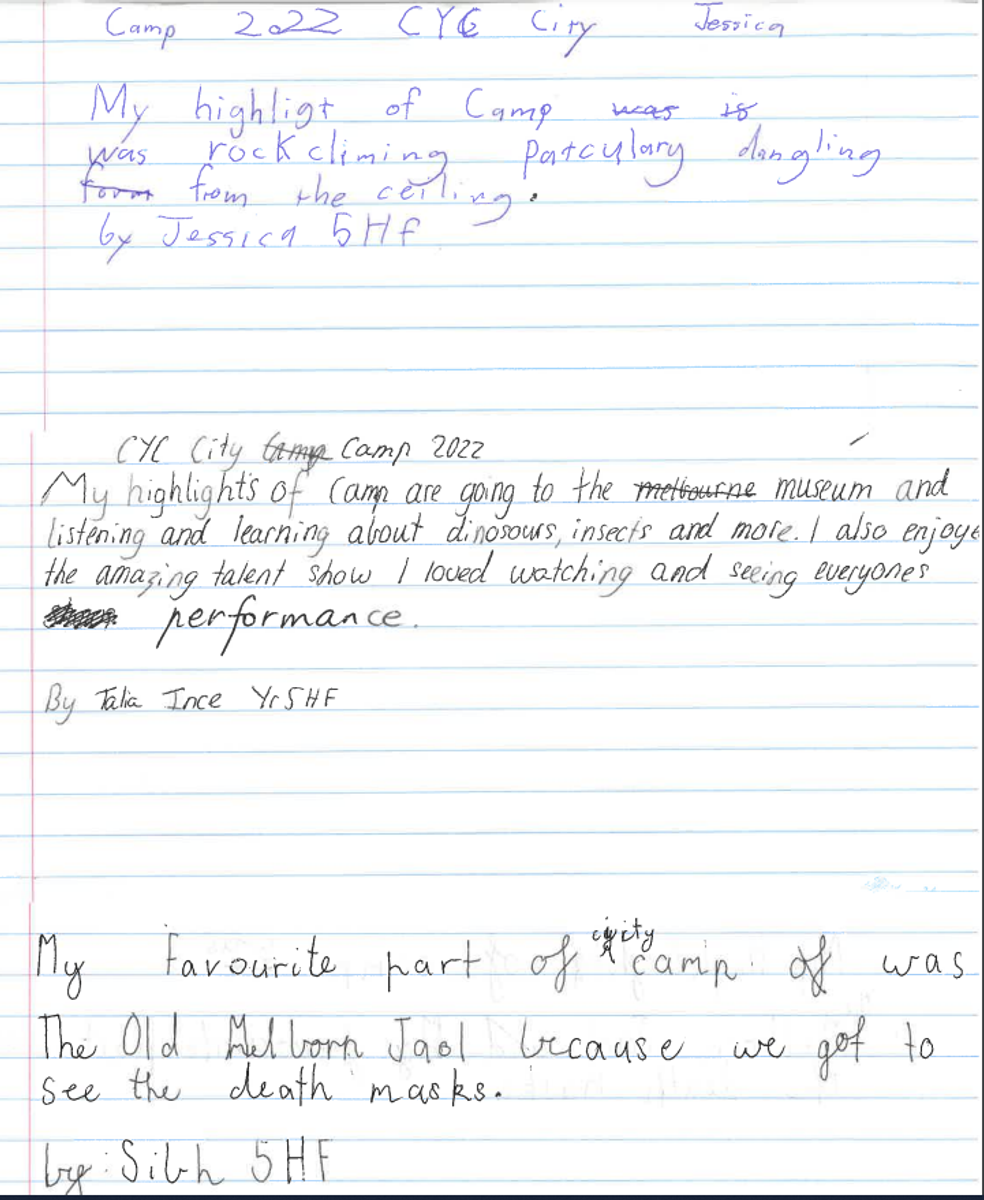 Camp 2022 CYC City Jessica
My highligt of Camp was is
was rock climing patculary dangling
form from the ceiling.
by Jessica 5HF
CYC City Camp Camp 2022
My highlights of Camp are going to the melbourne museum and
listening and learning about dinosours, insects and more. I also enjoye
the amazing talent show I loved watching and seeing everyones
performance.
By Talia Ince Yr5HF
city
My favourite part of camp of was
The Old Melborn Jaol because we got to
see the death masks.
by: Sibh 5HF